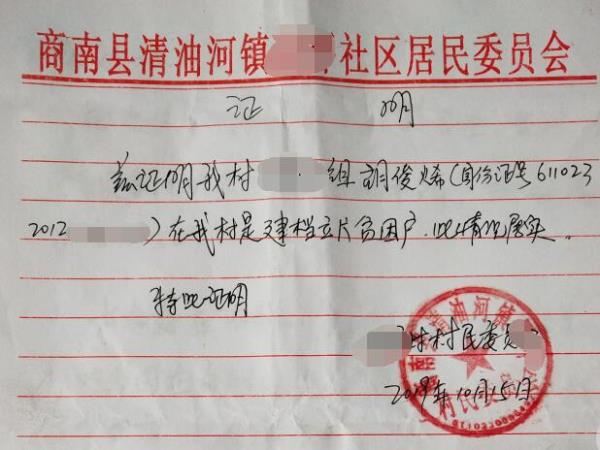 商南县清油河镇 社区居民委员会
证 明
兹证明我村 组胡俊烯(身份证号611023
2012 )在我村是建档立卡贫困户,此情况属实。
特此证明
村民委员
2019年10月15日